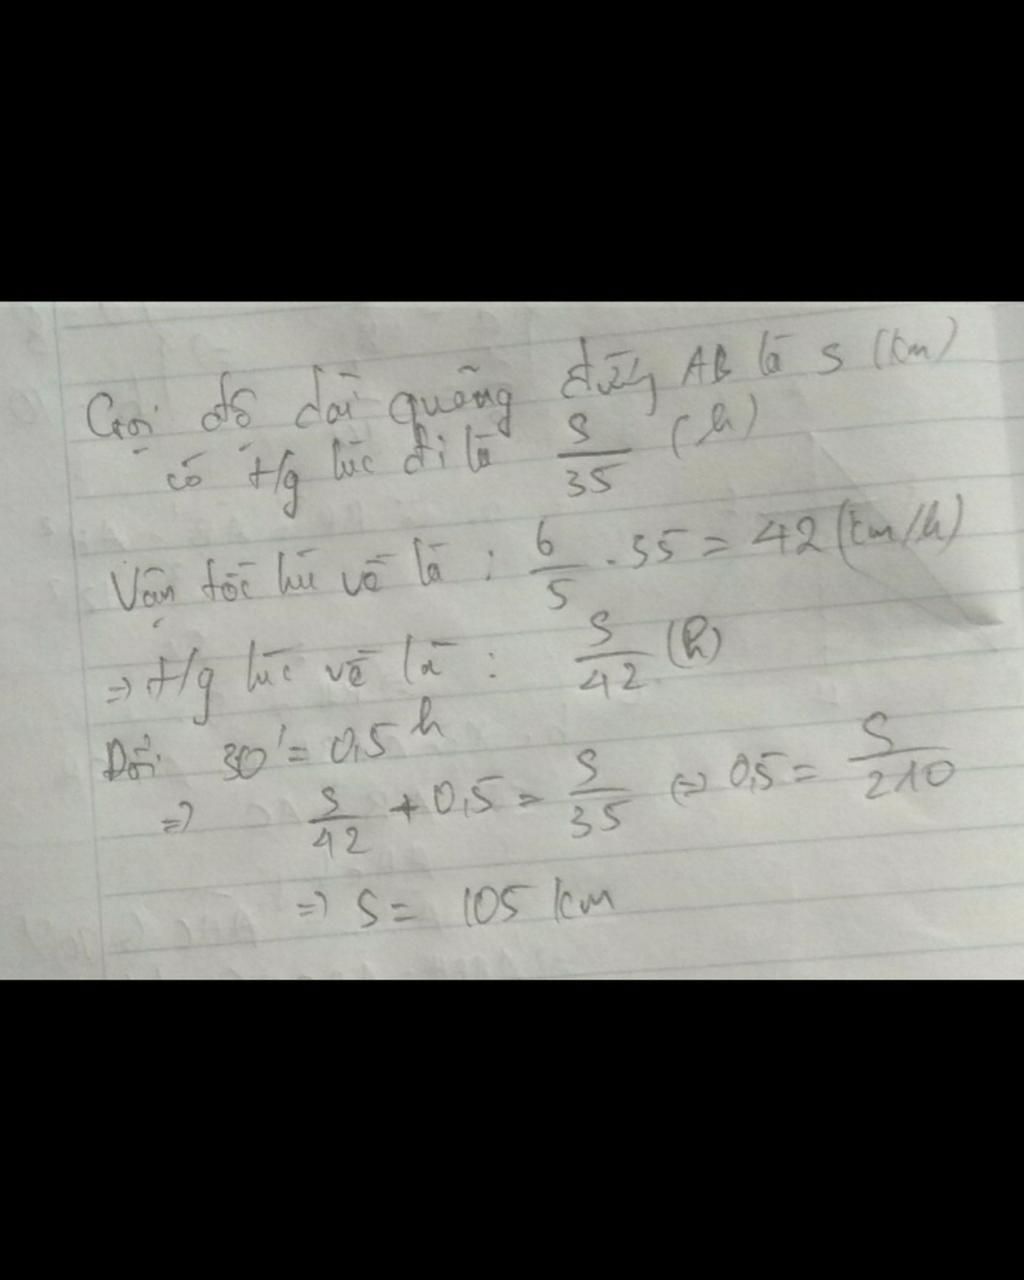 Gọi độ dài quãng đường AB là S (km)
có t/g lúc đi là S/35 (h)
Vận tốc lúc về là : 6/5 . 35 = 42 (km/h)
=> t/g lúc về là : S/42 (h)
Đổi 30' = 0,5 h
=> S/42 + 0,5 = S/35 <=> 0,5 = S/210
=> S = 105 km